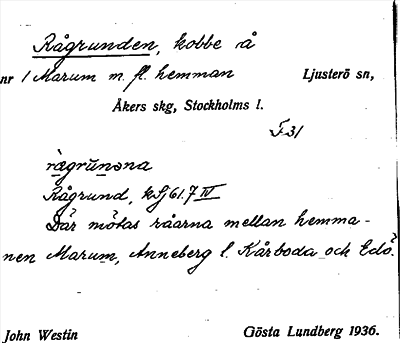 Rågrunden, kobbe å
nr 1 Marum m. fl. hemman Ljusterö sn,
Åkers skg, Stockholms l.
F31
Rågrund, kSj 61.7 IV
Där mötas råarna mellan hemma-
nen Marum, Anneberg l. Kårboda och Edö.
John Westin Gösta Lundberg 1936.